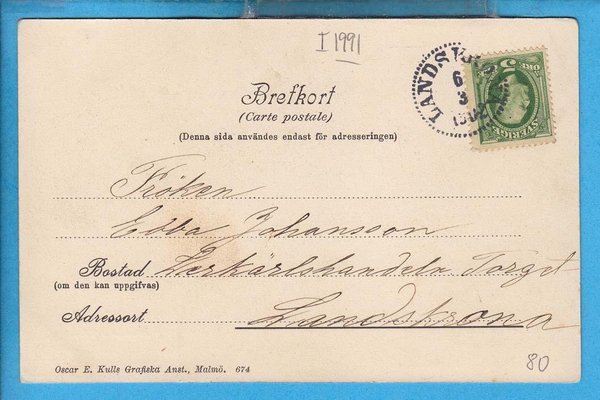 I 1991
LANDSKRONA
6
3
1902
5 ÖRE 5
SVERIGE
Brefkort
(Carte postale)
(Denna sida användes endast för adresseringen)
Fröken
Ebba Johansson
Bostad Lerkärlshandeln Torget
(om den kan uppgifvas)
Adressort Landskrona
80
Oscar E. Kulls Grafiska Anst., Malmö. 674